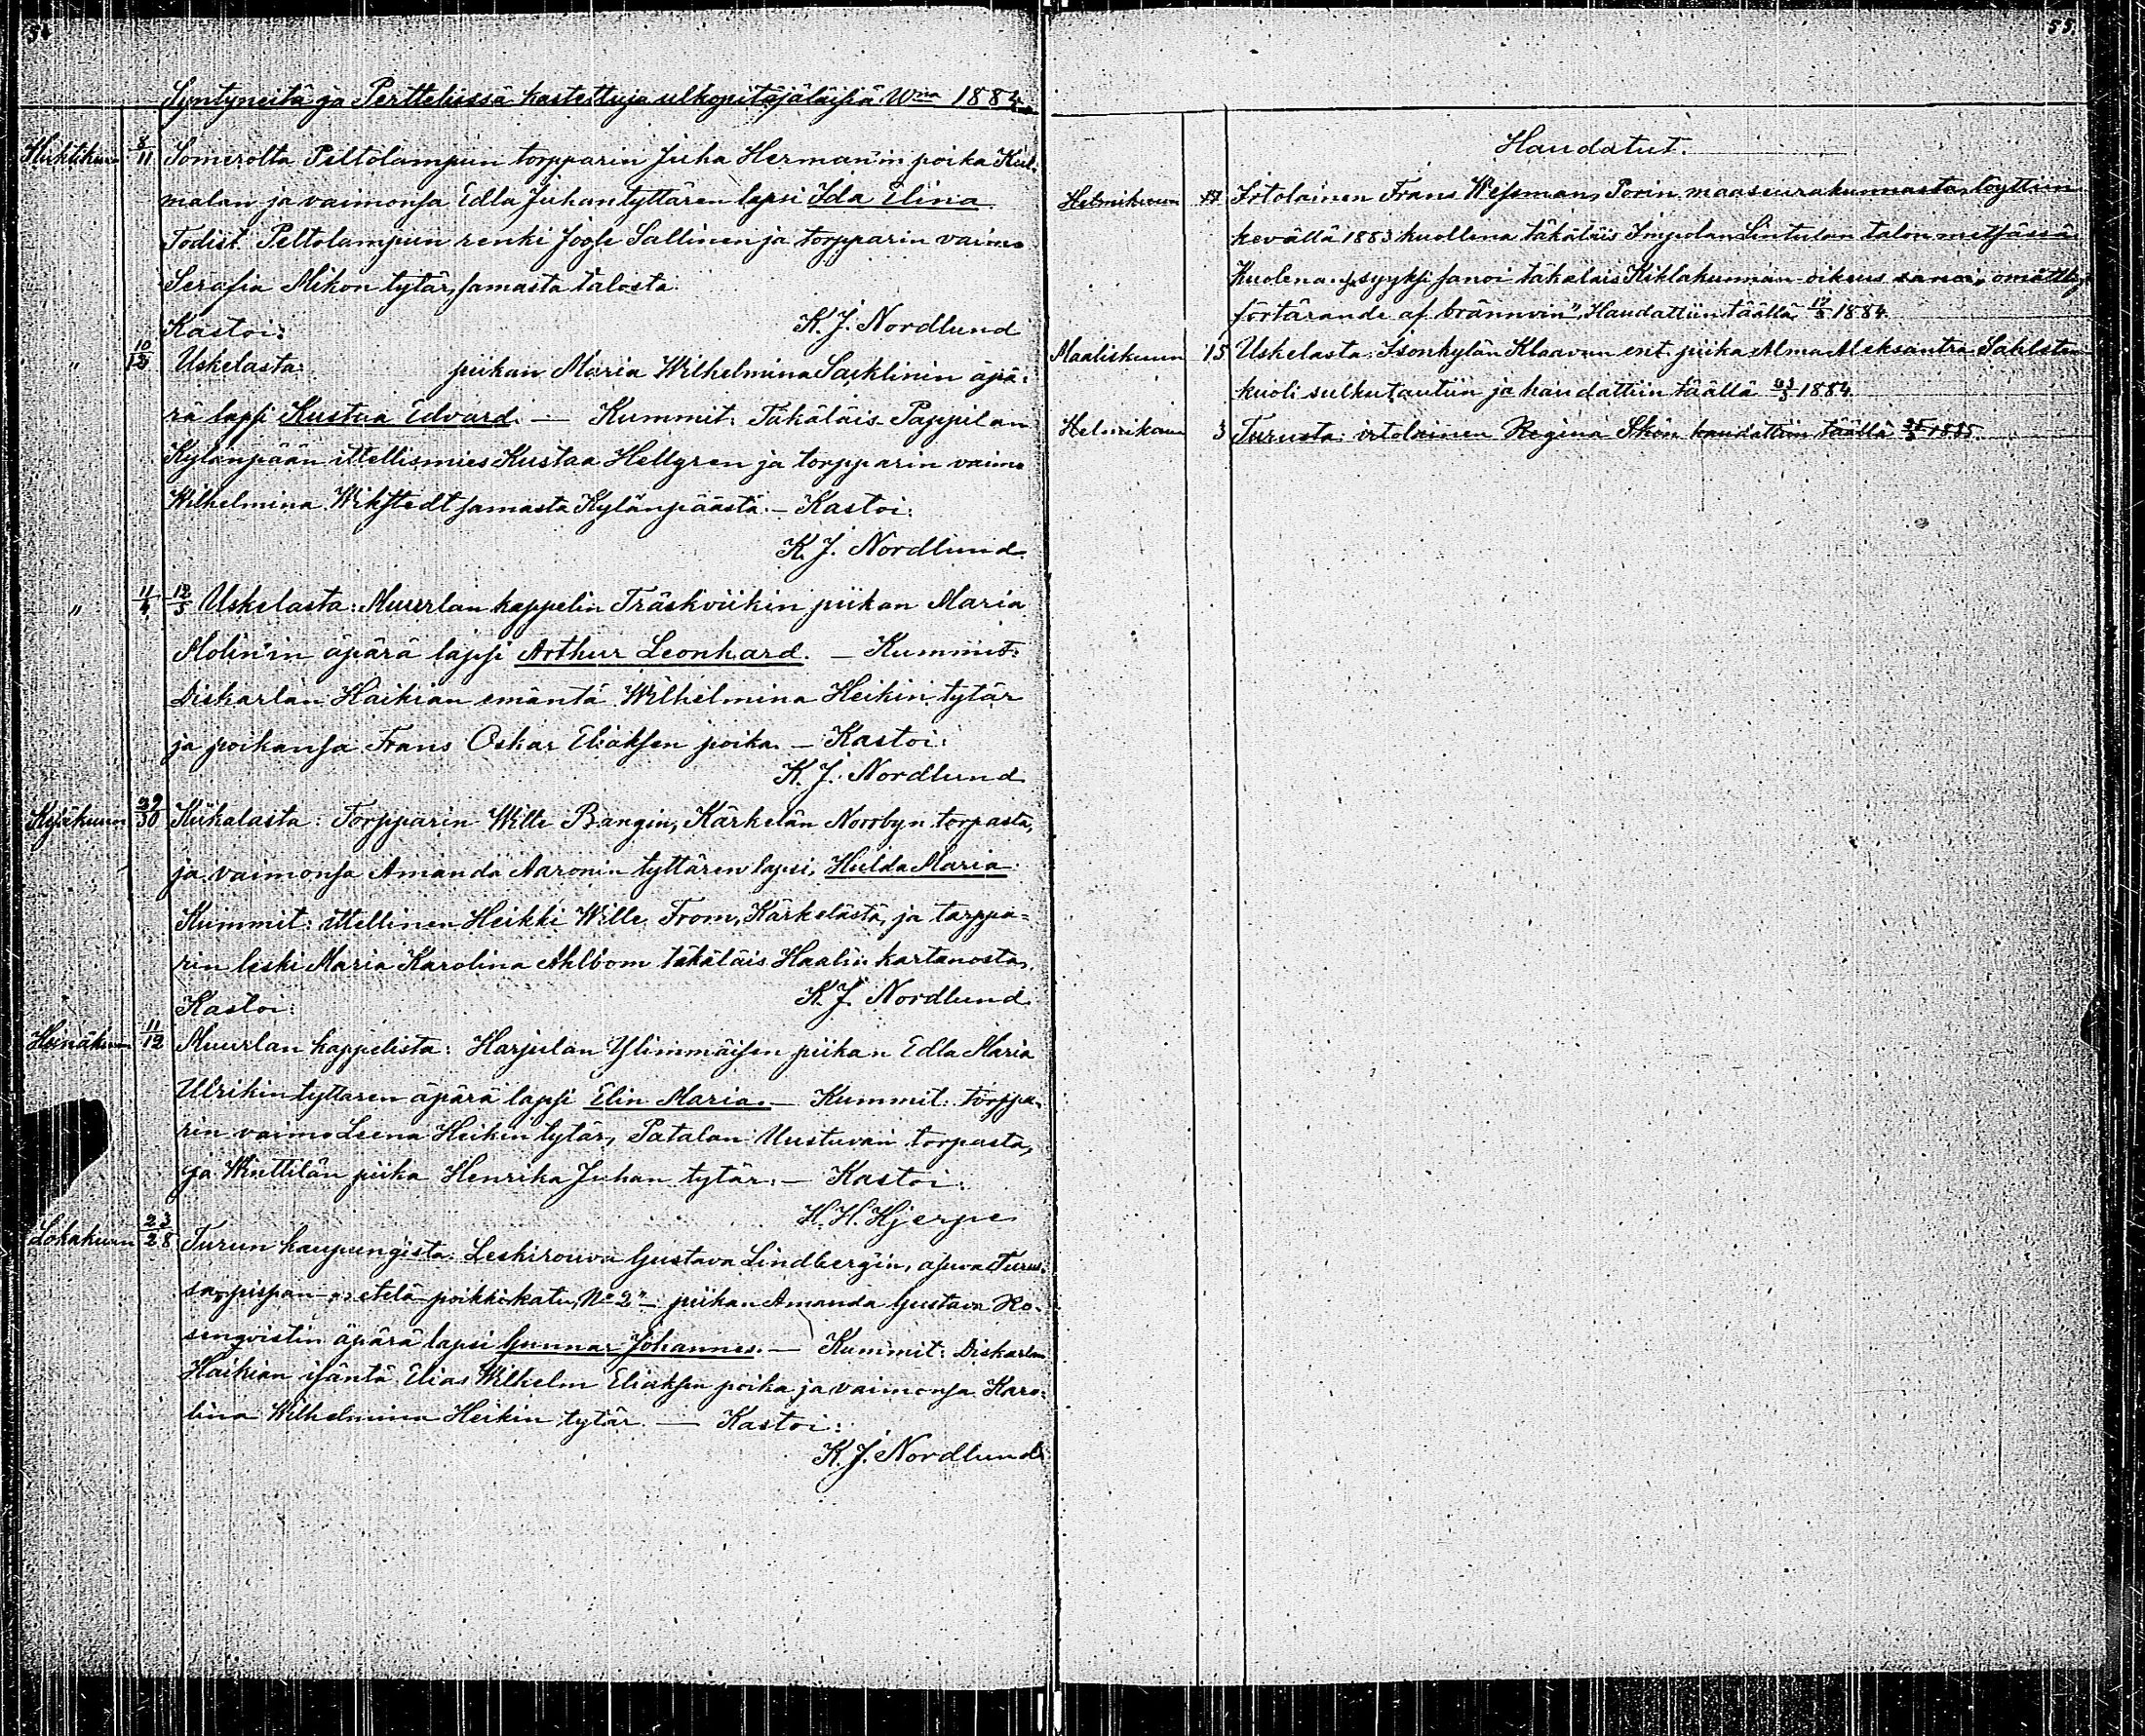 54
Syntyneitä ja Perttelissä kastettuja ulkopitäjäläisiä Wna 1884
Huhtikuun 8/11 Somerolta Peltolammpun torpparin Juha Herman'in poika Kul-
malan ja vaimonsa Edla Juhantyttären lapsi Ida Elina
Todist. Peltolampun renki Sallinen ja torpparin vaimo
Serafia Mikon tytär, samasta talosta.
Kastoi: K. J. Nordlund
" 10/12 Uskelasta: piikan Maria Wilhelmina Sacklinin äpä-
rä lapsi Kustaa Edvard. — Kummit: Täkäläis Pappilan
Kylänpään ittellismies Kustaa Hellgren ja torpparin vaimo
Wilhelmina Wikstedt samasta Kylänpäästä. — Kastoi:
K. J. Nordlund
" 11/4 12/5 Uskelasta: Muurlan kappelin Träskviikin piikan Maria
Molin'in äpärä lapsi Arthur Leonhard. — Kummit:
Diskarlan Haikian emäntä Wilhelmina Heikin tytär
ja poikansa Frans Oskar Eliaksen poika. — Kastoi:
K. J. Nordlund
Kesäkuun 29/30 Kiikalasta: Torpparin Wille Bangin, Kärkelän Norrbyn torpasta,
ja vaimonsa Amanda Aaronin tyttären lapsi, Hulda Maria
Kummit: ittellinen Heikki Wille From, Kärkelästä, ja torppa-
rin leski Maria Karolina Ahlbom täkäläis Haalin kartanosta.
Kastoi: K. J. Nordlund
Heinäkuun 11/12 Muurlan kappelista: Harjulan Ylimmäisen piikan Edla Maria
Ulrikin tyttären äpärä lapsi Elin Maria. — Kummit: torppa-
rin vaimo Leena Heikin tytär, Patalan Uustuvan torpasta,
ja Wuttilän piika Henrika Juhan tytär. — Kastoi:
K. H. Hjerpe
Lokakuun 23/28 Turun kaupungista: Leskirouva Gustava Lindbergin, asuva Turus-
sa, etelä poikkikatu, No 2" — piikan Amanda Gustava Ro-
senqvistin äpärä lapsi Gunnar Johannes. — Kummit: Diskarlan
Haikian isäntä Elias Wilhelm Eliaksen poika ja vaimonsa Karo-
lina Wilhelmina Heikin tytär. — Kastoi:
K. J. Nordlund
55.
Haudatut.
Helmikuun 17 Irtolainen Frans Wessman, Porin maaseurakunnasta, löyttiin
kevällä 1883 kuollena täkäläis Impolan Lintulan talon metsässä
Kuolenansyyksi sanoi täkäläis Kihlakunnan oikeus omåttlig
förtärande af brännvin", Haudattiin täällä 1884.
Maaliskuun 15 Uskelasta: Isonkylän Klaavun ent. piika Alma Aleksantra Sahlsten
kuoli sulkutautiin ja haudattiin täällä 23/3 1884.
Helmikuun 3 Turusta: irtolainen Regina Skön haudattiin täällä 1885.